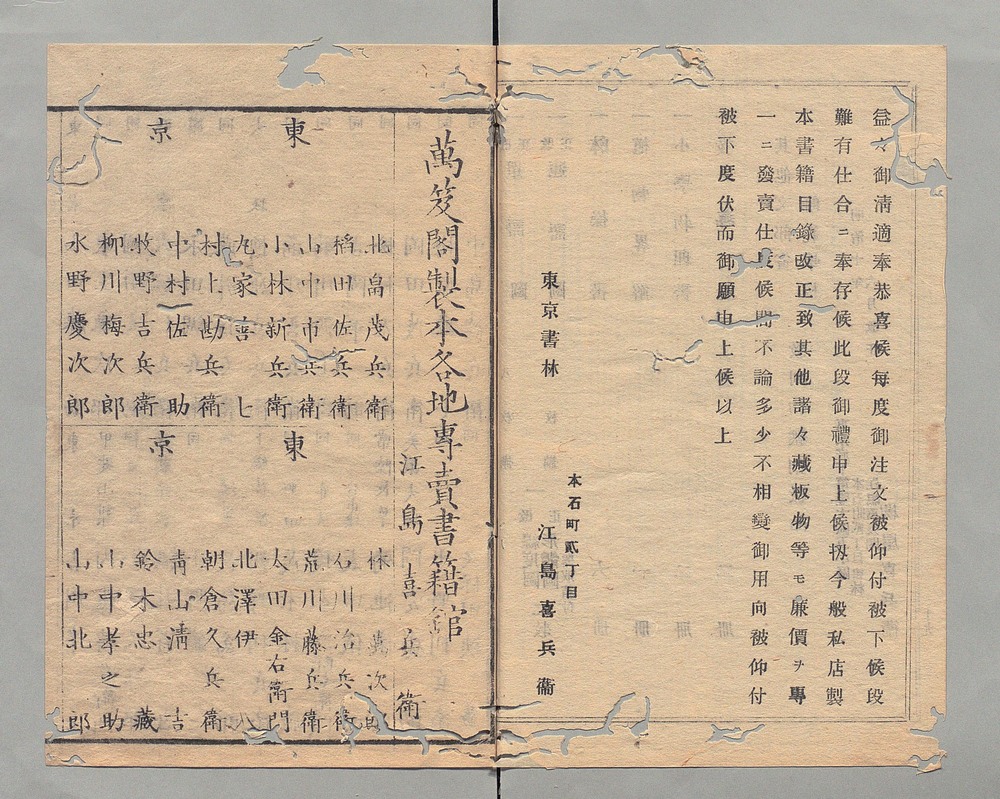 益々御淸適奉恭喜候每度御注文被仰付被下候段
難有仕合ニ奉存候此段御禮申上候扨今般私店製
本書籍目錄改正致其他諸々藏板物等モ廉價ヲ專
一ニ發賣仕候間不論多少不相變御用向被仰付
被下度伏而御願申上候以上
東京書林
本石町貳丁目
江島喜兵衞
萬笈閣製本各地專賣書籍舘
江島喜兵衛
東京
北畠茂兵衛
稻田佐兵衛
山中市兵衛
小林新兵衛
丸家善七
村上勘兵衛
中村佐助
牧野吉兵衛
柳川梅次郎
水野慶次郎
東京
石川治兵衛
荒川藤兵衛
太田金右衛門
北澤伊八
朝倉久兵衛
靑山淸吉
鈴木忠藏
山中孝之助
山中北郎